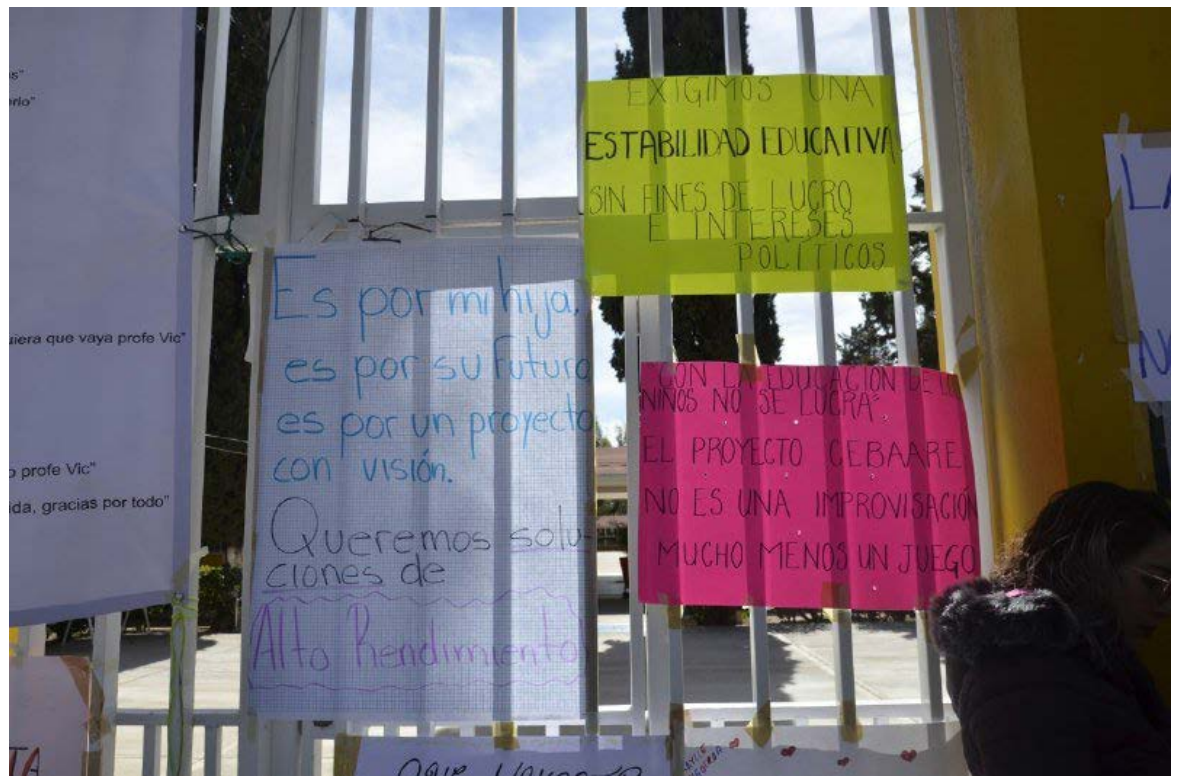 iera que vaya profe Vic"
profe Vic"
ida, gracias por todo"
Es por mi hija,
es por su futuro
es por un proyecto
con visión.
Queremos solu-
ciones de
Alto Rendimiento
EXIGIMOS UNA
ESTABILIDAD EDUCATIVA
SIN FINES DE LUCRO
E INTERESES
POLÍTICOS
CON LA EDUCACIÓN DE
NIÑOS NO SE LUCRA"
EL PROYECTO CEBAARE
NO ES UNA IMPROVISACIÓN
MUCHO MENOS UN JUEGO
LA
N
TA